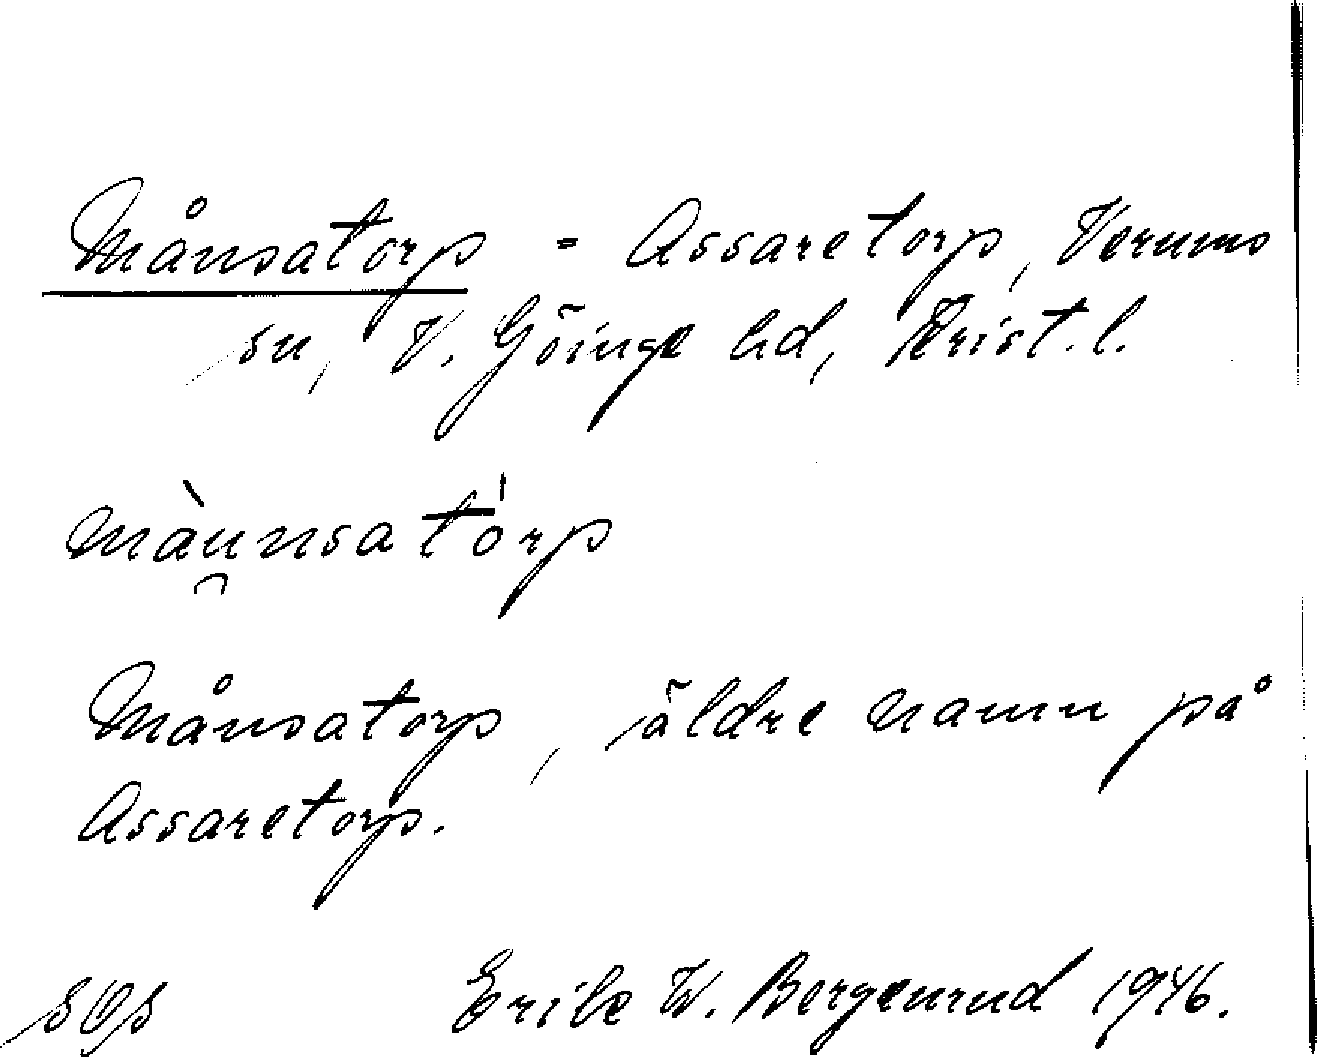 Månsatorp = Assaretorp, Verums
sn, V. Göinge hd, Krist. l.
màu̯nsatórp
Månsatorp, äldre namn på
Assaretorp.
Erik W. Bergenrud 1946.